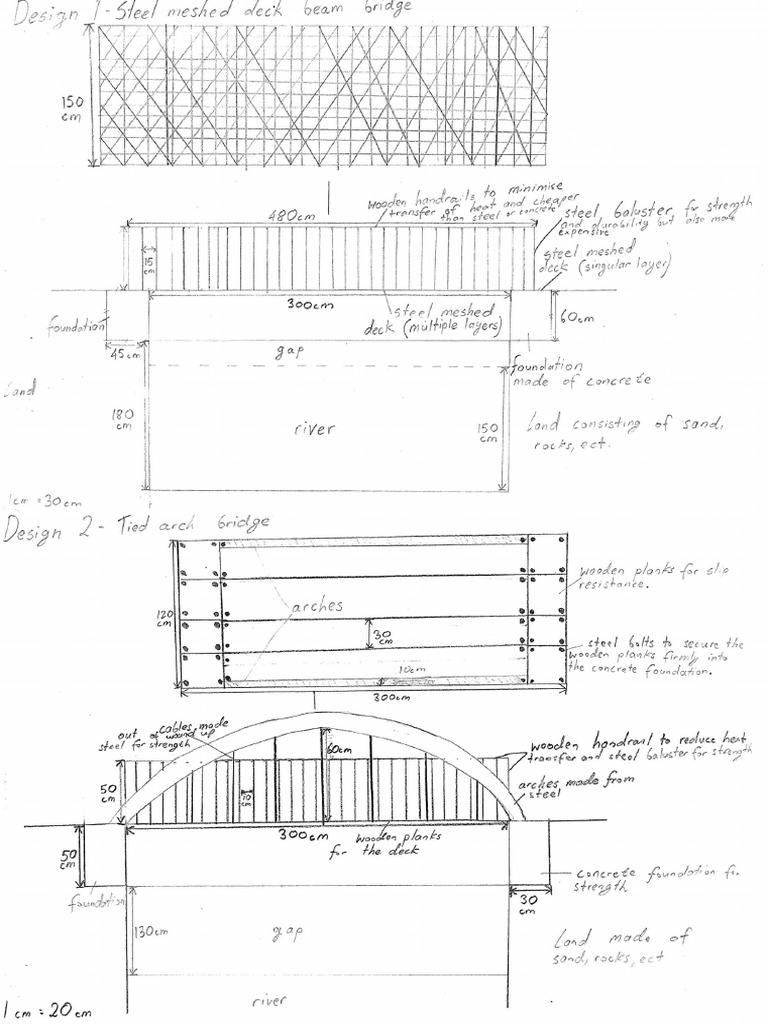 Design 1 - Steel meshed deck beam bridge
150
cm
wooden handrails to minimise
transfer of heat and cheaper
than steel or concrete
480cm
steel baluster for strength
and durability but also more
expensive
15
cm
steel meshed
deck (singular layer)
300cm
steel meshed
deck (multiple layers)
60cm
foundation
45cm
gap
foundation
made of concrete
land
180
cm
river
150
cm
Land consisting of sand,
rocks, ect.
1cm = 30cm
Design 2 - Tied arch bridge
120
cm
arches
30
cm
10cm
300cm
wooden planks for slip
resistance.
steel bolts to secure the
wooden planks firmly into
the concrete foundation.
cables made
out of wound up
steel for strength
60cm
50
cm
10
cm
wooden handrail to reduce heat
transfer and steel baluster for strength
arches made from
steel
300cm
wooden planks
for the deck
50
cm
foundation
concrete foundation for
strength
30
cm
130cm
gap
Land made of
sand, rocks, ect
river
1cm = 20cm